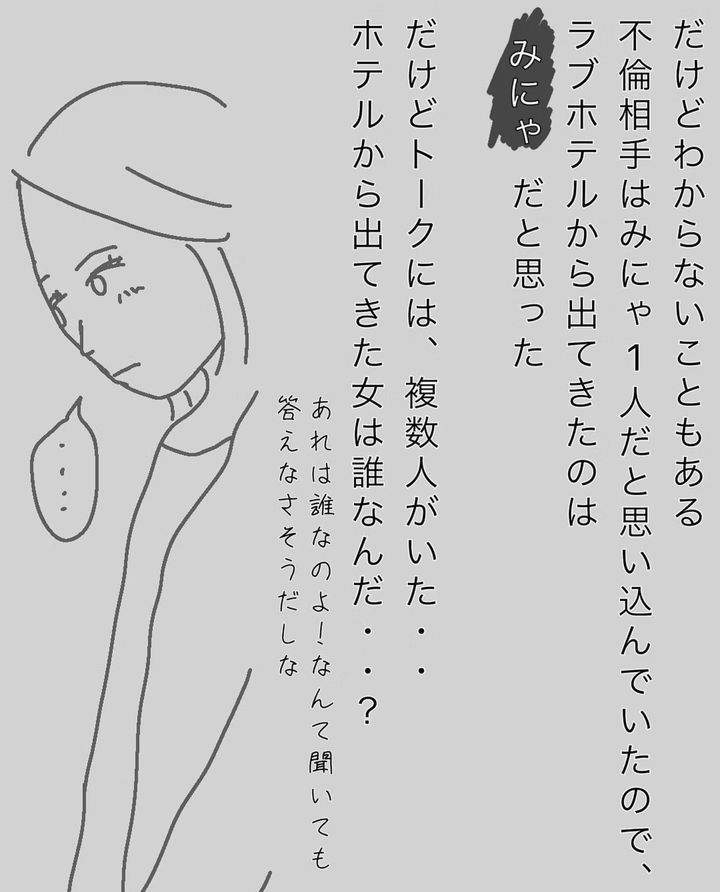 だけどわからないこともある
不倫相手はみにゃ1人だと思い込んでいたので、
ラブホテルから出てきたのは
みにゃだと思った
だけどトークには、複数人がいた・・
ホテルから出てきた女は誰なんだ・・?
あれは誰なのよ!なんて聞いても
答えなさそうだしな
・・・・